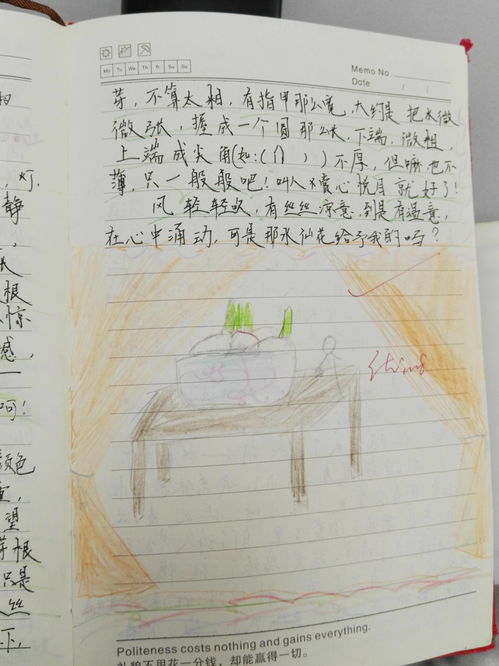 Memo No.
Mo Tu We Th Fr Sa Su
Date / /
芽，不算太粗，有指甲那么宽，大约是把水微
微张，握成一个圆那么长，下端，微粗，
上端成尖角(如:( ) )不厚，但嘛也不
薄，只一般般吧！叫人赏心悦目就好了！
风轻轻吹，有丝丝凉意，到是有温意，
在心中涌动，可是那水仙花给予我的吗？
相
灯，
静
根
惊
感，
呵！
颜色
望
芽根
只是
丝
下，
Politeness costs nothing and gains everything.
礼貌不用花一分钱，却能赢得一切。